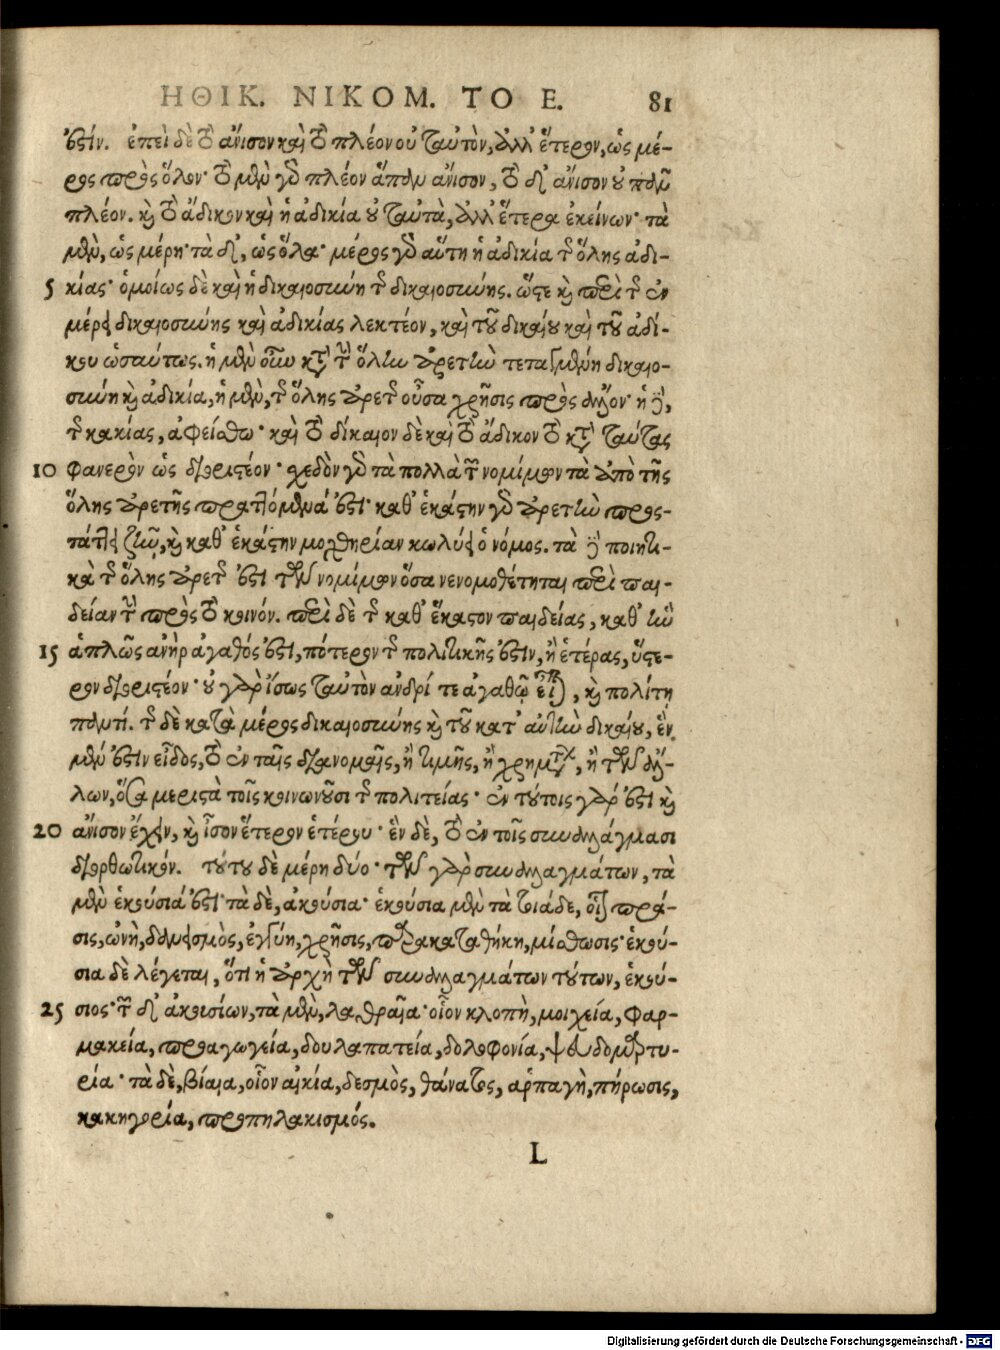 ΗΘΙΚ. ΝΙΚΟΜ. ΤΟ Ε. 81
ἐστίν. ἐπεὶ δὲ τὸ ἄνισον καὶ τὸ πλέον οὐ ταὐτὸν, ἀλλ' ἕτερον, ὡς μέ-
ρος πρὸς ὅλον· τὸ μὲν γὸ πλέον ἅπαν ἄνισον, τὸ δ' ἄνισον οὐ πᾶν
πλέον. καὶ τὸ ἄδικον καὶ ἡ ἀδικία οὐ ταὐτὰ, ἀλλ' ἕτερα ἐκείνων· τὰ
μὲν, ὡς μέρη· τὰ δ', ὡς ὅλα· μέρος γὸ αὕτη ἡ ἀδικία τῆς ὅλης ἀδι-
5 κίας· ὁμοίως δὲ καὶ ἡ δικαιοσύνη τῆς δικαιοσύνης. ὥστε καὶ περὶ τῆς ἐν
μέρει δικαιοσύνης καὶ ἀδικίας λεκτέον, καὶ τοῦ δικαίου καὶ τοῦ ἀδί-
κου ὡσαύτως. ἡ μὲν οὖν κατὰ τὴν ὅλην ἀρετὴν τεταγμένη δικαιο-
σύνη καὶ ἀδικία, ἡ μὲν, τῆς ὅλης ἀρετῆς οὖσα χρῆσις πρὸς ἄλλον· ἡ δὲ,
τῆς κακίας, ἀφείσθω· καὶ τὸ δίκαιον δὲ καὶ τὸ ἄδικον τὸ κατὰ ταύτας
10 φανερὸν ὡς διοριστέον· σχεδὸν γὸ τὰ πολλὰ τῶν νομίμων τὰ ἀπὸ τῆς
ὅλης ἀρετῆς πραττόμενά ἐστι· καθ' ἑκάστην γὸ ἀρετὴν προς-
τάττει ζῆν, καὶ καθ' ἑκάστην μοχθηρίαν κωλύει ὁ νόμος. τὰ δὲ ποιητι-
κὰ τῆς ὅλης ἀρετῆς ἐστὶ τῶν νομίμων ὅσα νενομοθέτηται περὶ παι-
δείαν τὴν πρὸς τὸ κοινόν. περὶ δὲ τῆς καθ' ἕκαστον παιδείας, καθ' ἣν
15 ἁπλῶς ἀνὴρ ἀγαθός ἐστι, πότερον τῆς πολιτικῆς ἐστὶν, ἢ ἑτέρας, ὕστε-
ρον διοριστέον· οὐ γὰρ ἴσως ταὐτὸν ἀνδρί τε ἀγαθῷ εἶναι, καὶ πολίτῃ
παντί. τῆς δὲ κατὰ μέρος δικαιοσύνης καὶ τοῦ κατ' αὐτὴν δικαίου, ἓν
μέν ἐστιν εἶδος, τὸ ἐν ταῖς διανομαῖς, ἢ τιμῆς, ἢ χρημάτων, ἢ τῶν ἄλ-
λων, ὅσα μεριστὰ τοῖς κοινωνοῦσι τῆς πολιτείας· ἐν τούτοις γάρ ἐστι καὶ
20 ἄνισον ἔχειν, καὶ ἴσον ἕτερον ἑτέρου· ἓν δὲ, τὸ ἐν τοῖς συναλλάγμασι
διορθωτικόν. τούτου δὲ μέρη δύο· τῶν γὰρ συναλλαγμάτων, τὰ
μὲν ἑκούσιά ἐστι· τὰ δὲ, ἀκούσια· ἑκούσια μὲν τὰ τοιάδε, οἷον πρᾶ-
σις, ὠνὴ, δανεισμὸς, ἐγγύη, χρῆσις, παρακαταθήκη, μίσθωσις· ἑκού-
σια δὲ λέγεται, ὅτι ἡ ἀρχὴ τῶν συναλλαγμάτων τούτων, ἑκού-
25 σιος· τῶν δ' ἀκουσίων, τὰ μὲν, λαθραῖα· οἷον κλοπὴ, μοιχεία, φαρ-
μακεία, προαγωγεία, δουλαπατεία, δολοφονία, ψευδομαρτυ-
ρία· τὰ δὲ, βίαια, οἷον αἰκία, δεσμὸς, θάνατος, ἁρπαγὴ, πήρωσις,
κακηγορία, προπηλακισμός.
L
Digitalisierung gefördert durch die Deutsche Forschungsgemeinschaft - DFG